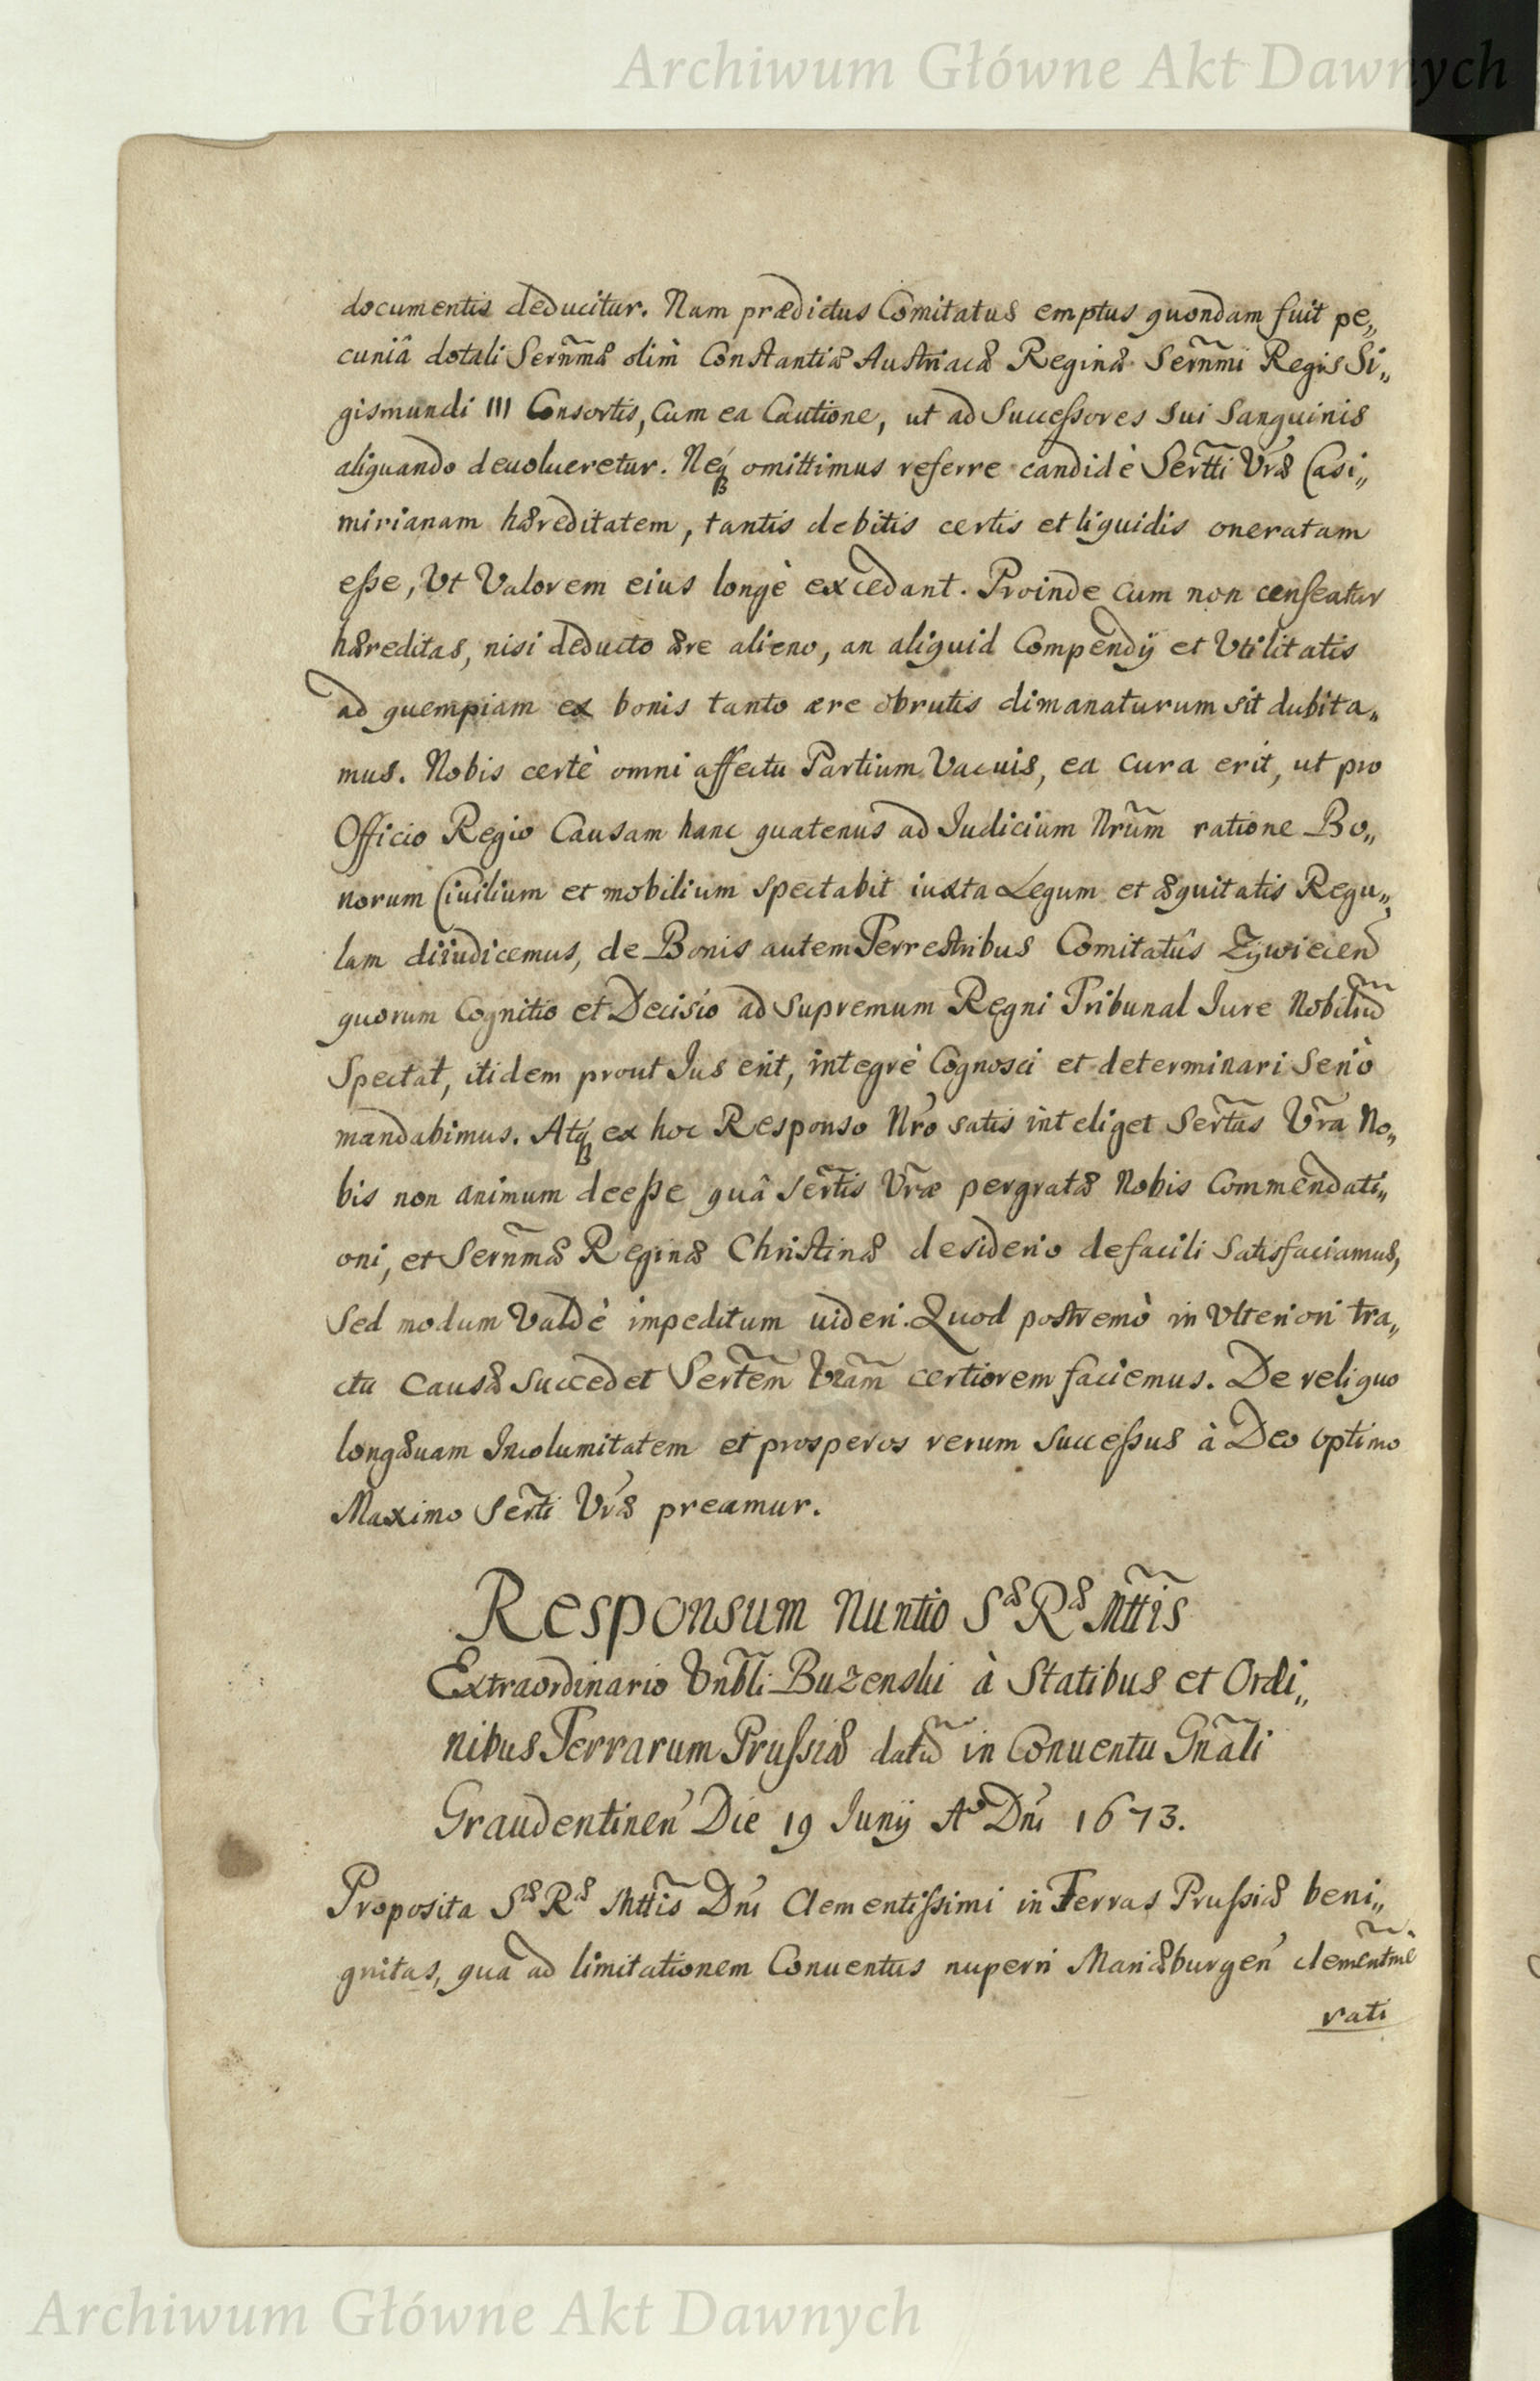 Archiwum Główne Akt Dawnych
documentis deducitur. Nam prædictus Comitatus emptus quondam fuit pe„
cuniâ dotali Sernm̃æ olim Constantiæ Austriacæ Reginæ Sernm̃i Regis Si„
gismundi III Consortis, Cum ea Cautione, ut ad Successores sui Sanguinis
aliquando deuolueretur. Neq́ omittimus referre candidè Sertt̃i Vr̃æ Casi„
mirianam hæreditatem, tantis debitis certis et liquidis oneratam
eſse, Vt Valorem eius longè excedant. Proinde cum non censeatur
hæreditas, nisi deducto ære alieno, an aliquid Compendÿ et Vtilitatis
ad quempiam ex bonis tanto ære obrutis dimanaturum sit dubita„
mus. Nobis certè omni affectu Partium Vacuis, ea cura erit, ut pro
Officio Regio Causam hanc quatenus ad Iudicium Nrũm ratione Bo„
norum Ciuilium et mobilium spectabit iuxta Legum et æquitatis Regu„
lam diiudicemus, de Bonis autem Terrestribus Comitatûs Zywiecen̉
quorum Cognitio et Decisio ad supremum Regni Tribunal Iure Nobiliũ
Spectat, itidem prout Ius erit, integrè Cognosci et determinari Seriò
mandabimus. Atq́ ex hoc Responso Nr̃o satis inteliget Sert̃as Vr̃a No„
bis non animum deeſse quâ Sert̃is Vr̃æ pergratæ Nobis Commendati„
oni, et Sernm̃æ Reginæ Christinæ desiderio defacili Satisfaciamus,
Sed modum Valdè impeditum uideri. Quod postremò in Vlteriori tra„
ctu Causæ Succedet Sert̃em Vrãm certiorem faciemus. De reliquo
longæuam Incolumitatem et prosperos rerum Succeſsus à Deo optimo
Maximo Sert̃i Vr̃æ preamur.
Responsum Nuntio Sæ Ræ Mtt̃is
Extraordinario Vnbl̃i Buzenski à Statibus et Ordi„
nibus Terrarum Pruſsiæ datũ in Conuentu Gnãli
Graudentinen̉ Die 19 Iunÿ Ao Dni 1673.
Proposita Sæ Ræ Mtt̃is Dni Clementiſsimi in Terras Pruſsiæ beni„
gnitas, quâ ad limitationem Conuentus nuperi Mariæburgen̉ clementm̃e
rati
Archiwum Główne Akt Dawnych